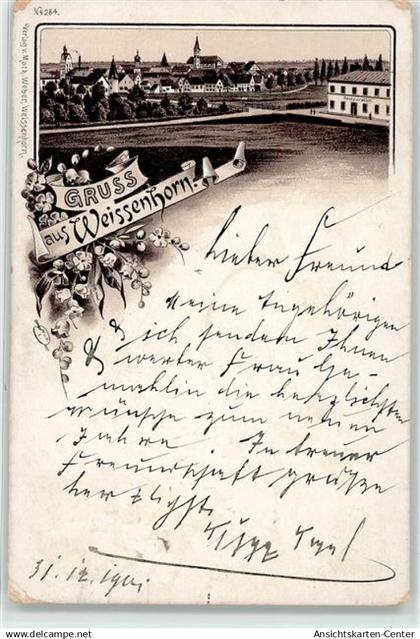 No 284.
Verlag v. Math. Weber, Weissenhorn.
GRUSS
aus Weissenhorn.
Lieber Freund
Meine Angehörigen
& ich senden Ihnen
& werter Frau Ge-
mahlin die herzlichsten
Wünsche zum neuen
Jahre. In treuer
Freundschaft grüßen
herzlichst
31.12.190
Ansichtskarten-Center.